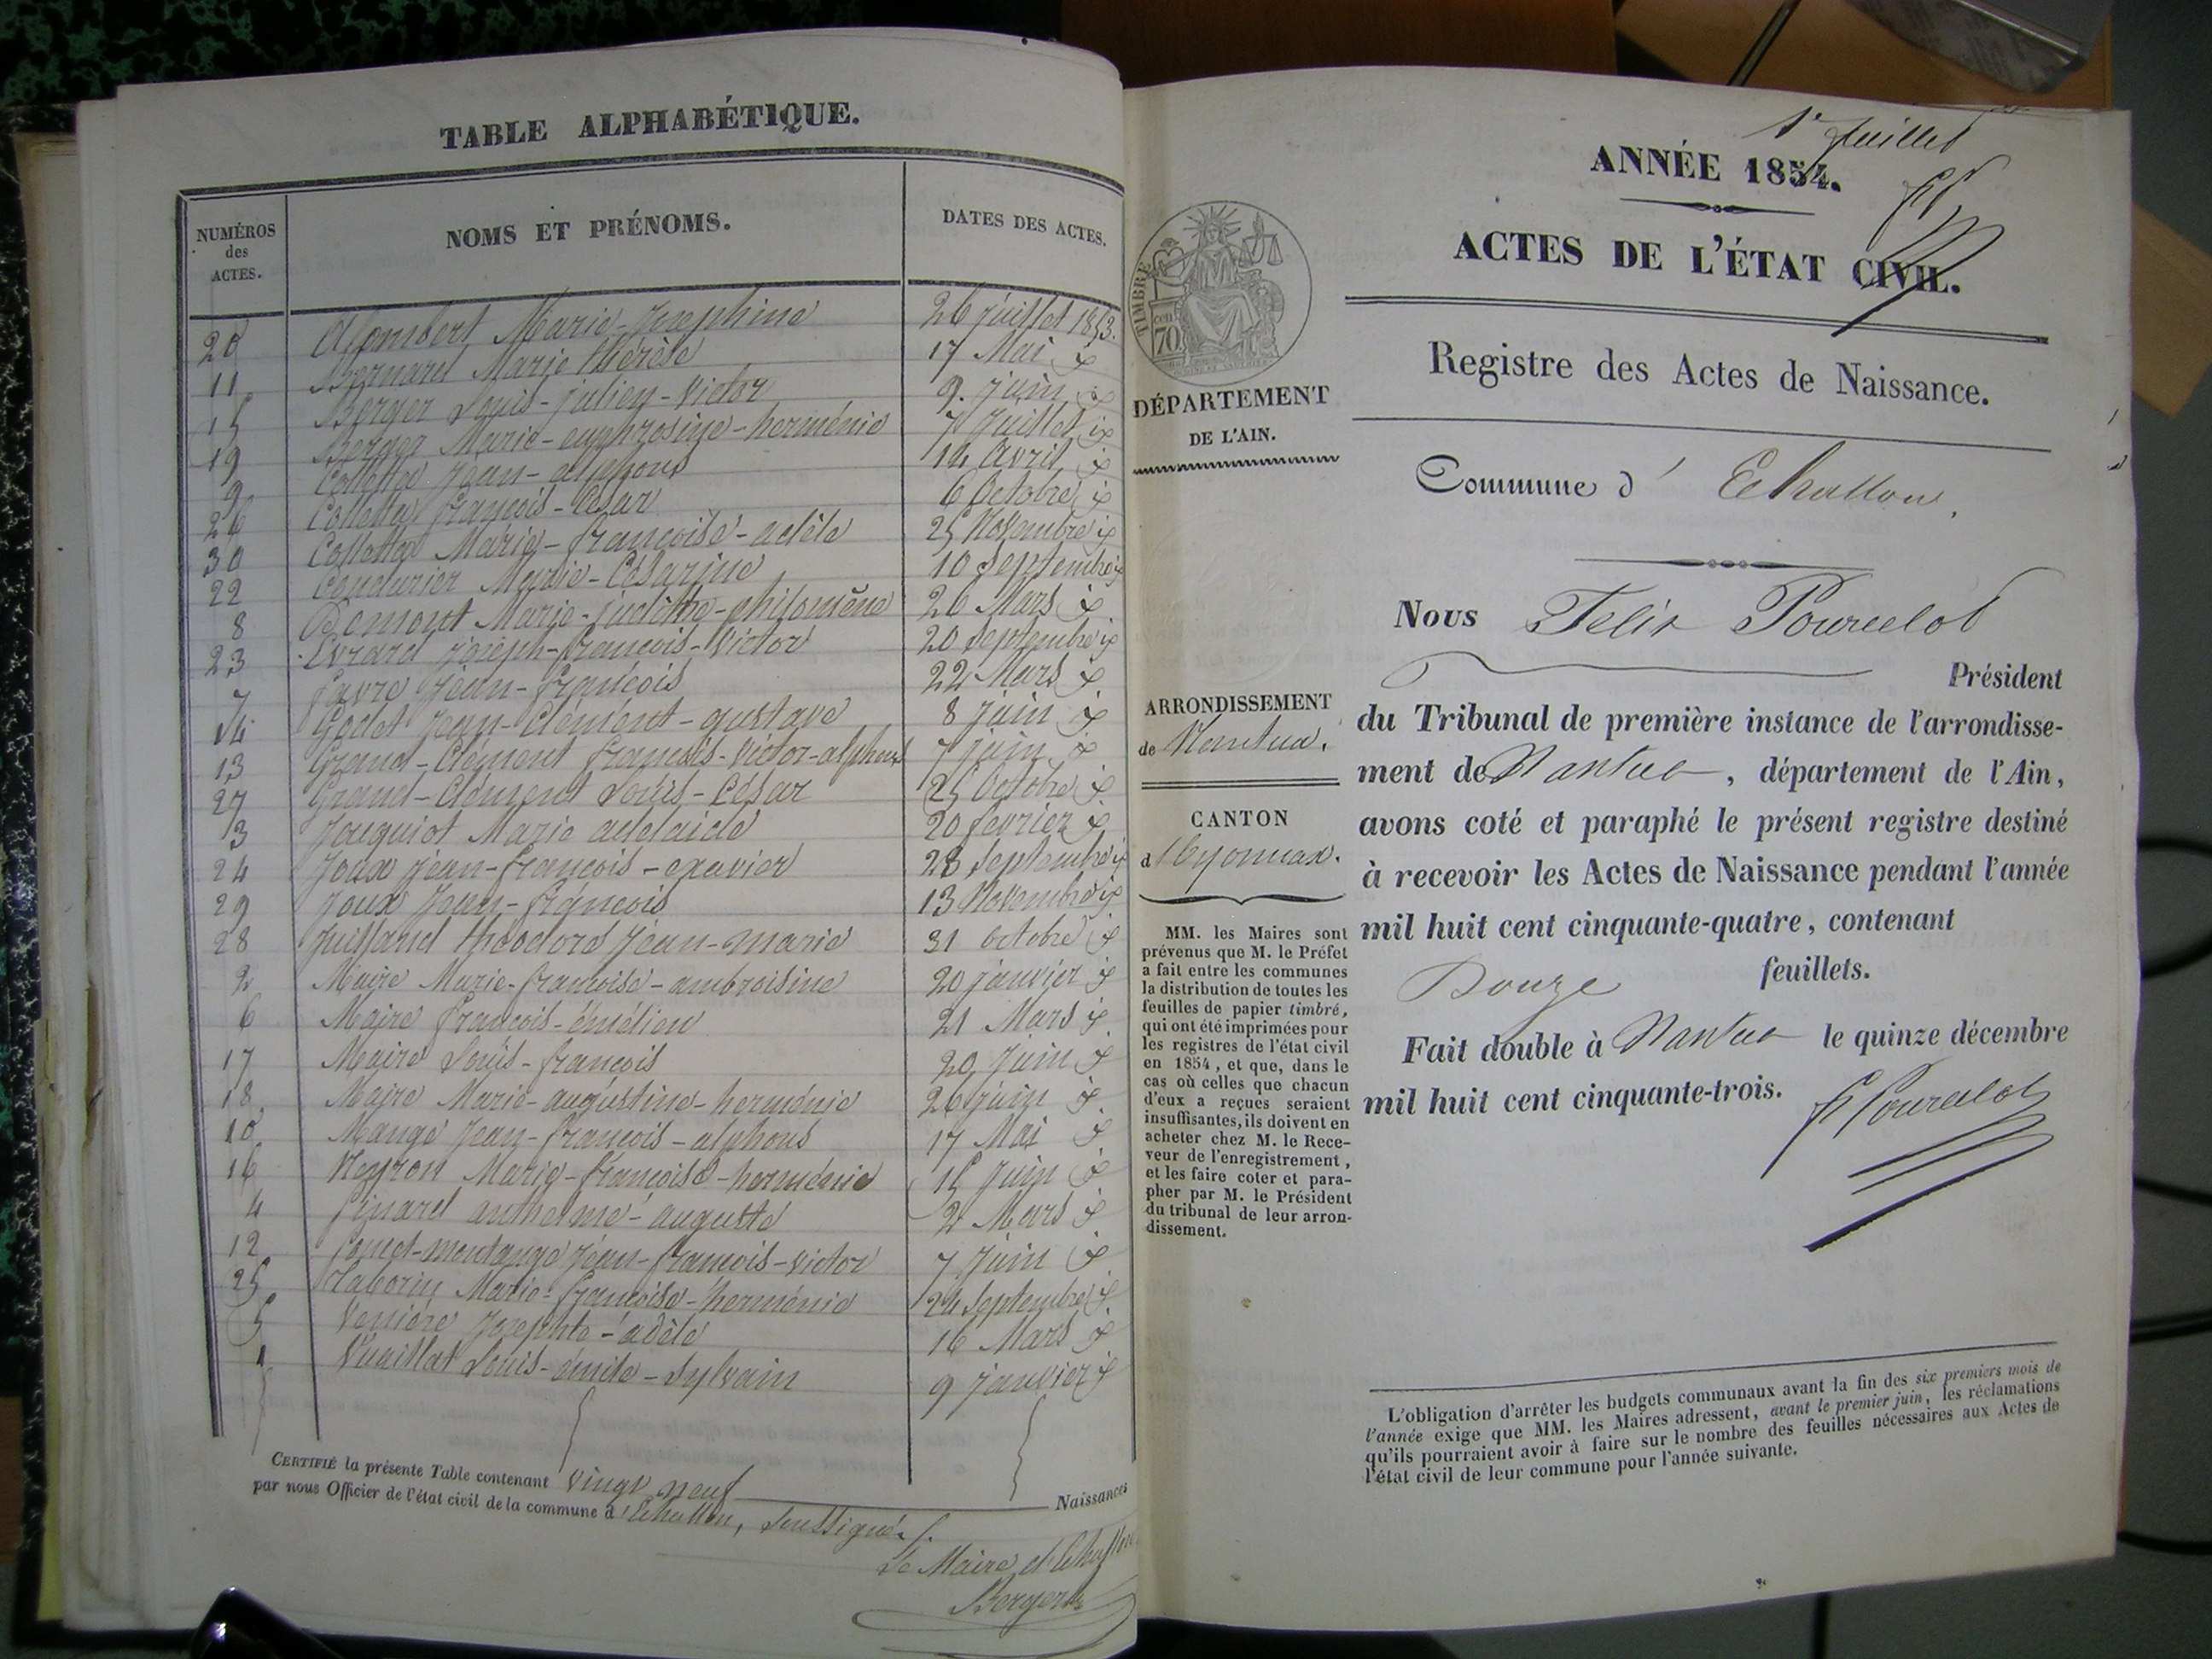 TABLE ALPHABÉTIQUE.
NUMÉROS des ACTES. NOMS ET PRÉNOMS. DATES DES ACTES.
20 Allombert Marie-Josephine 26 juillet 1853.
11 Bernard Marie thérèse 17 Mai
15 Berger Louis-julien-Victor 9 juin
19 Berger Marie-euphrosine-herménie 7 Juillet
9 Collettaz Jean-alphons 14 Avril
26 Collettaz françois-César 6 Octobre
30 Collettaz Marie-françoise-adèle 25 Novembre
22 Coudurier Marie-Césarine 10 Septembre
8 Demont Marie-judithe-philomène 26 Mars
23 Evrard joseph-françois-Victor 20 septembre
7 favre Jean-françois 22 Mars
14 Godet Jean-Clément-gustave 8 juin
13 Grand-Clément françois-Victor-alphons 7 juin
27 Grand-Clément Louis-César 25 Octobre
3 Jouquiot Marie adelaide 20 fevrier
24 Joux Jean-françois-exavier 28 Septembre
29 Joux Jean-françois 13 Novembre
28 Juilland théodore Jean-marie 31 octobre
2 Maire Marie-françoise-ambroisine 20 janvier
6 Maire françois-émélien 21 Mars
17 Maire Louis-françois 20 Juin
18 Maire Marie-augustine-herménie 26 juin
10 Mange Jean-françois-alphons 17 Mai
16 Neyron Marie-françoise-herménie 15 Juin
4 pinard anthelme-auguste 2 Mars
12 poncet-montange Jean-francois-Victor 7 Juin
25 Taborin Marie-françoise-herménie 24 Septembre
5 Josephte-adèle 16 Mars
1 Vuaillat Louis-émile-Sylvain 9 janvier
CERTIFIÉ la présente Table contenant vingt neuf Naissances
par nous Officier de l'état civil de la commune d'Echallon, soussigné.
Le Maire d'Echallon
Berger
1er Juillet
ANNÉE 1854.
ACTES DE L'ÉTAT CIVIL.
Registre des Actes de Naissance.
Commune d' Echallon.
TIMBRE
cen 70
DÉPARTEMENT
DE L'AIN.
ARRONDISSEMENT
de Nantua.
CANTON
d'Oyonnax.
MM. les Maires sont
prévenus que M. le Préfet
a fait entre les communes
la distribution de toutes les
feuilles de papier timbré,
qui ont été imprimées pour
les registres de l'état civil
en 1854, et que, dans le
cas où celles que chacun
d'eux a reçues seraient
insuffisantes, ils doivent en
acheter chez M. le Rece-
veur de l'enregistrement,
et les faire coter et para-
pher par M. le Président
du tribunal de leur arron-
dissement.
Nous Felix Pourcelot
Président
du Tribunal de première instance de l'arrondisse-
ment de Nantua, département de l'Ain,
avons coté et paraphé le présent registre destiné
à recevoir les Actes de Naissance pendant l'année
mil huit cent cinquante-quatre, contenant
Douze feuillets.
Fait double à Nantua le quinze décembre
mil huit cent cinquante-trois.
F Pourcelot
L'obligation d'arrêter les budgets communaux avant la fin des six premiers mois de
l'année exige que MM. les Maires adressent, avant le premier juin, les réclamations
qu'ils pourraient avoir à faire sur le nombre des feuilles nécessaires aux Actes de
l'état civil de leur commune pour l'année suivante.